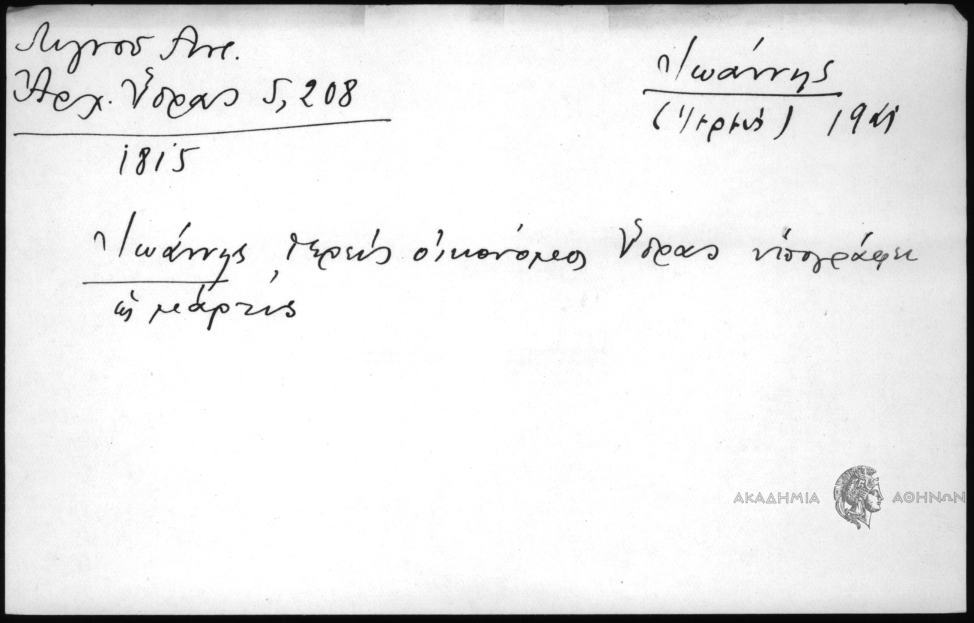 Λιγνού Αντ.
Ἀρχ. Ὕδρας 5, 208
1815
Ἰωάννης
(Ἱερεύς) 19ος
Ἰωάννης, ἱερεύς οἰκονόμος Ὕδρας ὑπογράφει
ὡς μάρτυς
ΑΚΑΔΗΜΙΑ ΑΘΗΝΩΝ